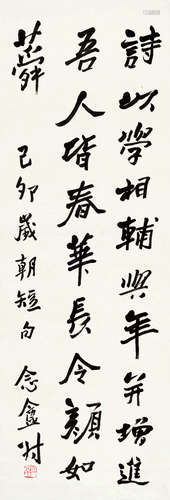 詩以學相輔與年並增進
吾人皆春華長令顏如
蕣
己卯歲朝短句 念盦時